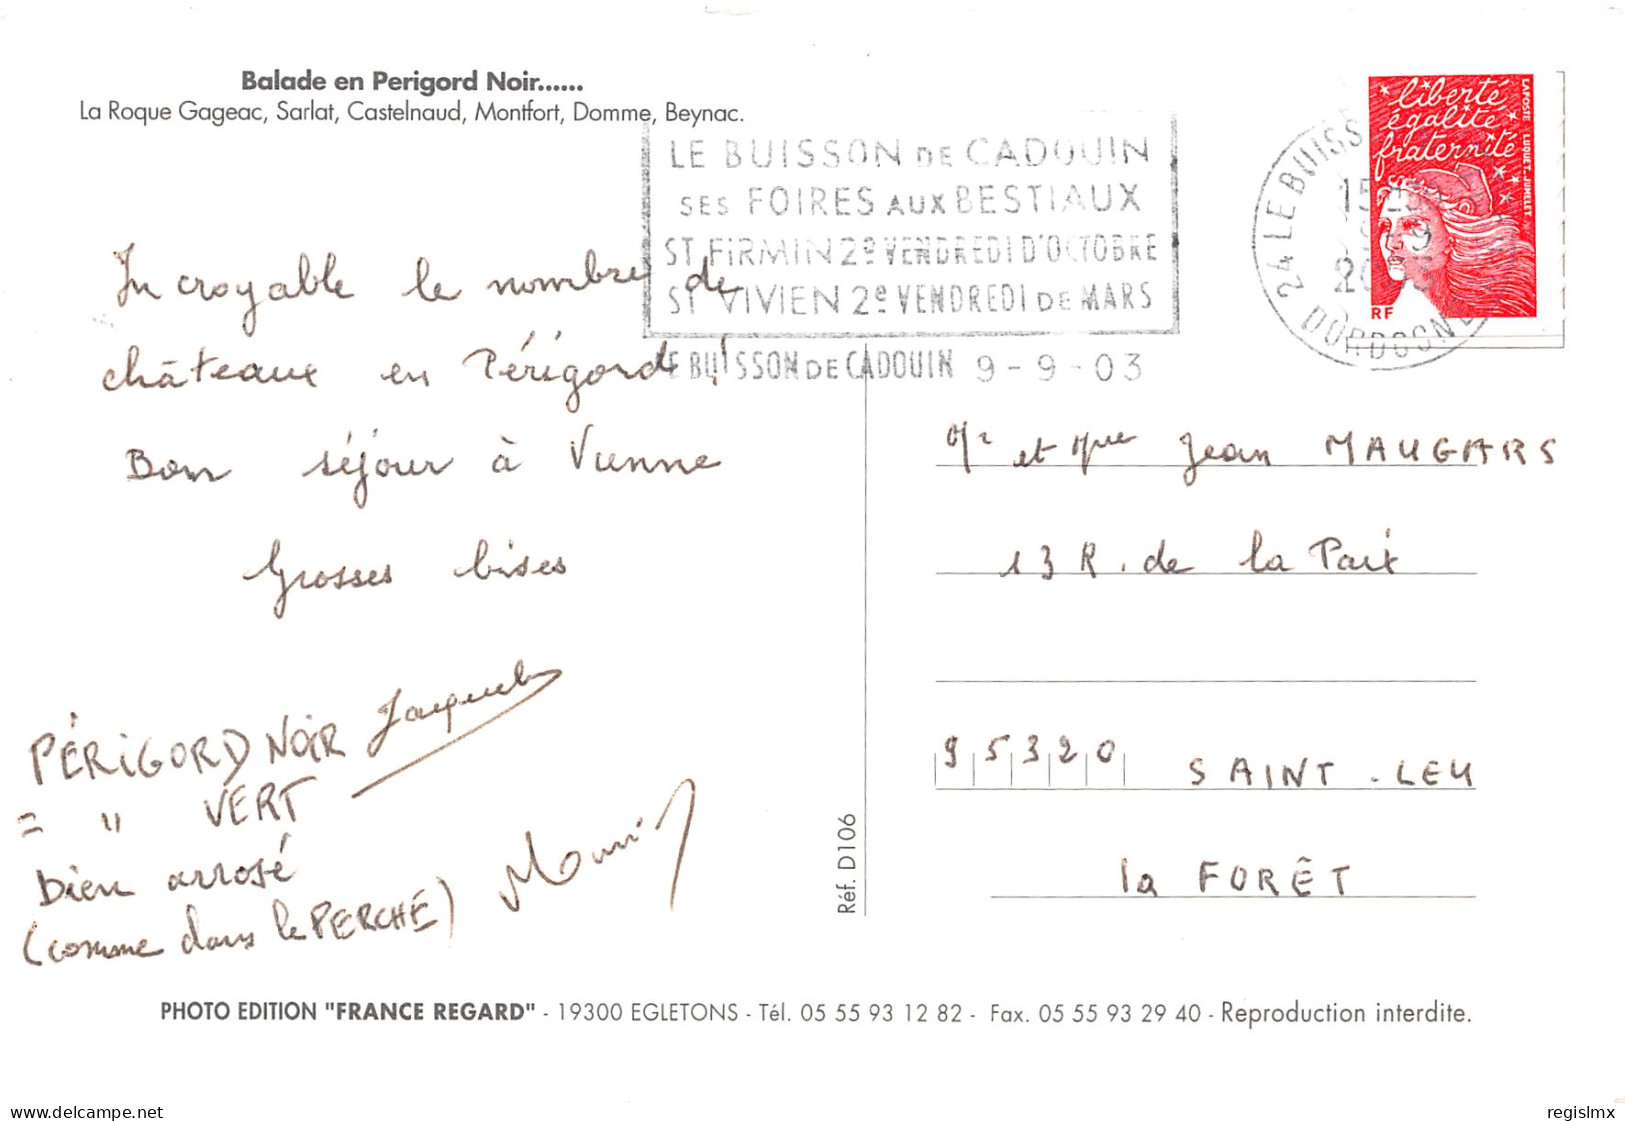 Balade en Perigord Noir......
La Roque Gageac, Sarlat, Castelnaud, Montfort, Domme, Beynac.
LE BUISSON DE CADOUIN
SES FOIRES AUX BESTIAUX
ST FIRMIN 2e VENDREDI D'OCTOBRE
ST VIVIEN 2e VENDREDI DE MARS
LE BUISSON DE CADOUIN 9-9-03
24 LE BUISS
DORDOGNE
liberté
égalité
fraternité
LAPOSTE LUQUET-JUMELET
RF
Incroyable le nombre de
châteaux en Périgord !
Bon séjour à Vienne
Grosses bises
PÉRIGORD NOIR
= " VERT
bien arrosé
(comme dans le PERCHE)
Mr et Mme Jean MAUGARS
13 R. de la Paix
95320 SAINT-LEU
la FORÊT
Réf. D106
PHOTO EDITION "FRANCE REGARD" - 19300 EGLETONS - Tél. 05 55 93 12 82 - Fax. 05 55 93 29 40 - Reproduction interdite.
delcampe.net
regislmx